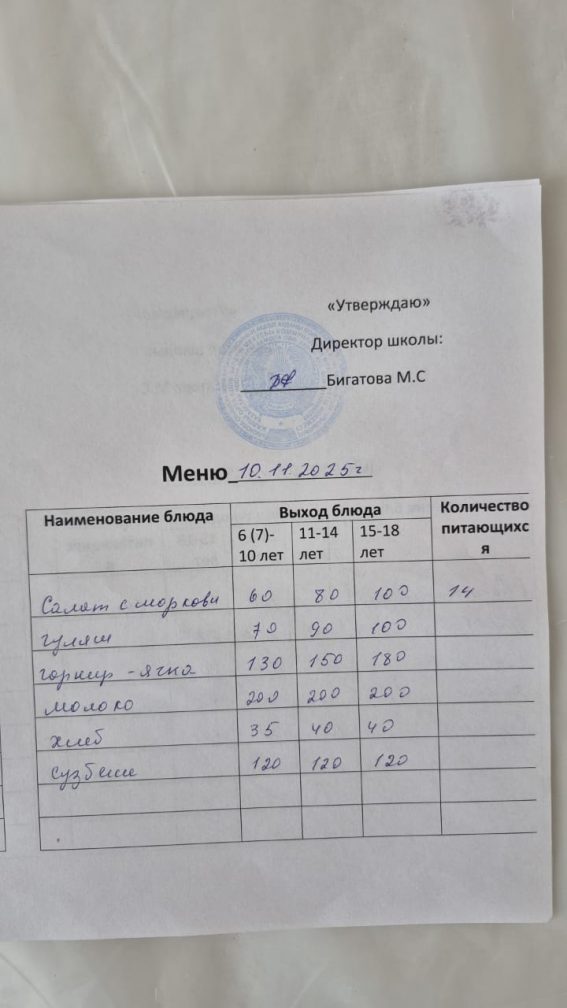 «Утверждаю»
Директор школы:
Бигатова М.С
Меню 10.11.2025г
Наименование блюда Выход блюда Количество питающихс я
6 (7)- 10 лет 11-14 лет 15-18 лет
Салат с моркови 60 80 100 14
гуляш 70 90 100
горнир - ячка 130 150 180
молоко 200 200 200
хлеб 35 40 40
сузбеше 120 120 120